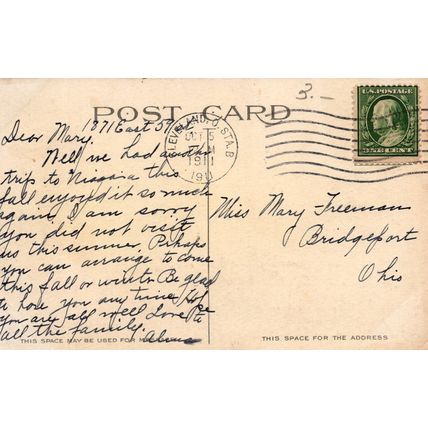 3.-
U.S. POSTAGE
ONE CENT
POST CARD
CLEVELAND, O. STA. B
OCT 5
1911
1871 East 57
Dear Mary.
Well we had another
trip to Niagara this
fall enjoyed it so much
again. I am sorry
you did not visit
us this summer. Perhaps
you can arrange to come
this fall or winter. Be glad
to have you any time. Hope
you are all well. Love to
all the family.
THIS SPACE MAY BE USED FOR
Miss Mary Freeman
Bridgeport
Ohio
THIS SPACE FOR THE ADDRESS